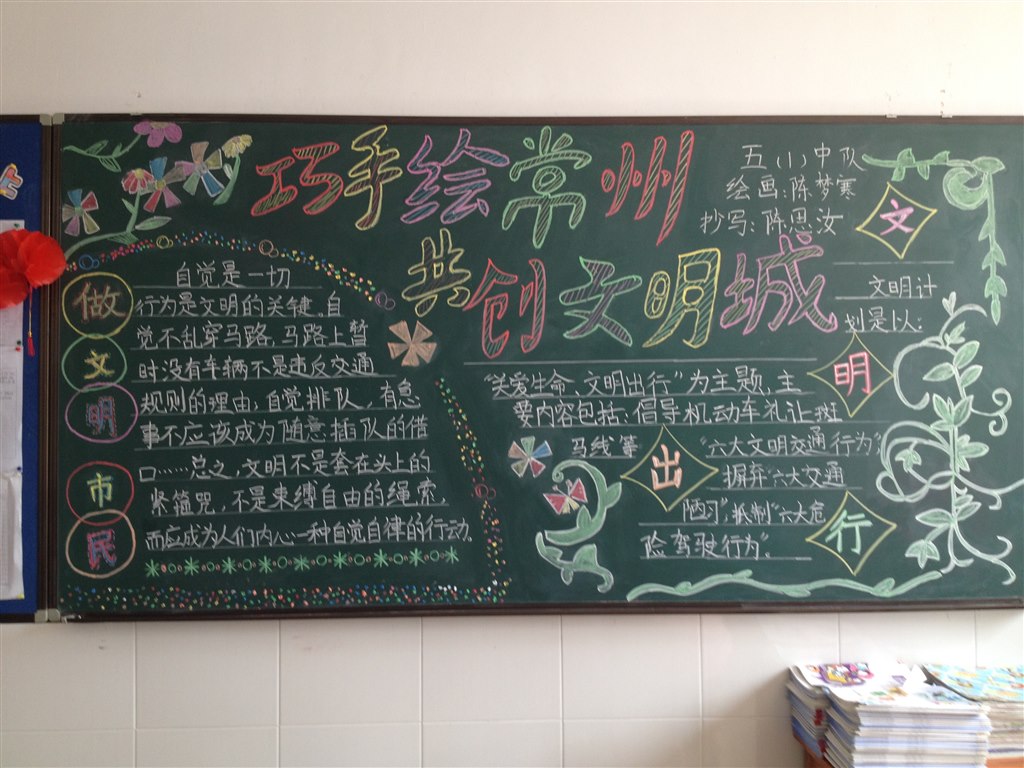 巧手绘常州
共创文明城
五(1)中队
绘画:陈梦寒
抄写:陈思汝
做文明市民
自觉是一切
行为是文明的关键。自
觉不乱穿马路,马路上暂
时没有车辆不是违反交通
规则的理由;自觉排队,有急
事不应该成为随意插队的借
口……总之,文明不是套在头上的
紧箍咒,不是束缚自由的绳索,
而应成为人们内心一种自觉自律的行动。
文明出行
文明计
划是以:
“关爱生命、文明出行”为主题,主
要内容包括:倡导机动车礼让斑
马线等“六大文明交通行为”
摒弃“六大交通
陋习”,抵制“六大危
险驾驶行为”。